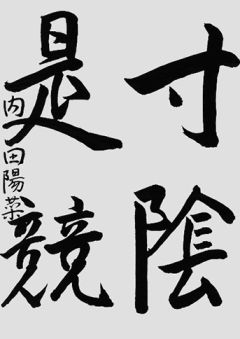 寸陰
是競
内田陽菜